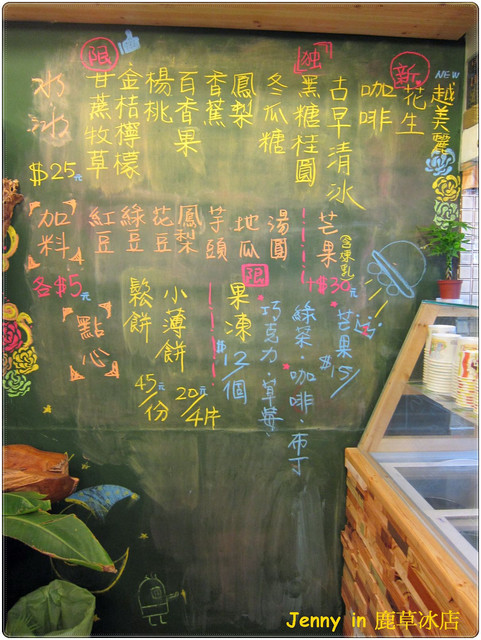 新
NEW
越美麗
花生
咖啡
古早清冰
獨
黑糖桂圓
冬瓜糖
鳳梨
香蕉
百香果
楊桃
限
金桔檸檬
甘蔗牧草
冰
$25元
芒果
(含煉乳)
+$30元
湯圓
地瓜
芋頭
鳳梨
花豆
綠豆
紅豆
加料
各$5元
芒果
$15/
綠茶·咖啡·布丁
巧克力·草莓·
限
果凍
$12/個
小薄餅
20元/4片
鬆餅
45元/份
點心
Jenny in 鹿草冰店